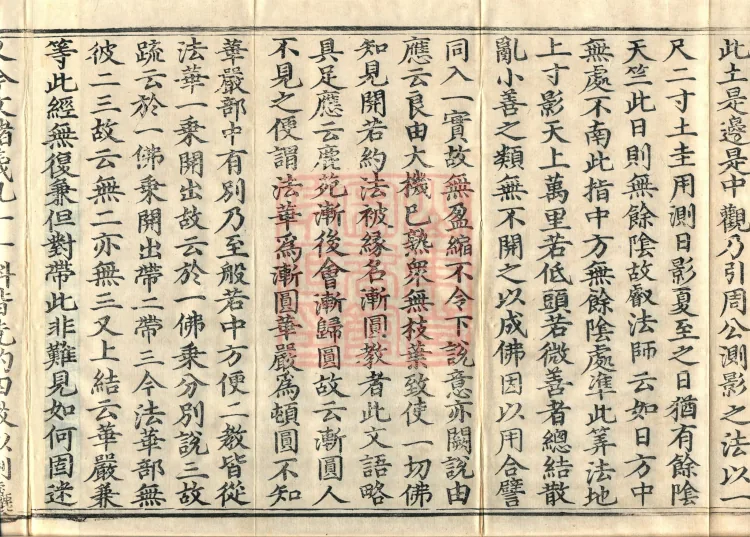 此土是邊是中觀乃引周公測影之法以一
尺二寸土圭用測日影夏至之日猶有餘陰
天竺此日則無餘陰故叡法師云如日方中
無處不南此指中方無餘陰處準此筭法地
上寸影天上萬里若低頭若微善者總結散
亂小善之類無不開之以成佛因以用合譬
同入一實故無盈縮不令下說意亦闕說由
應云良由大機已熟眾無枝葉致使一切佛
知見開若約法被緣名漸圓教者此文語略
具足應云鹿苑漸後會漸歸圓故云漸圓人
不見之便謂法華為漸圓華嚴為頓圓不知
華嚴部中有別乃至般若中方便二教皆從
法華一乘開出故云於一佛乘分別說三故
疏云於一佛乘開出帶二帶三今法華部無
彼二三故云無二亦無三又上結云華嚴兼
等此經無復兼但對帶此非難見如何固迷